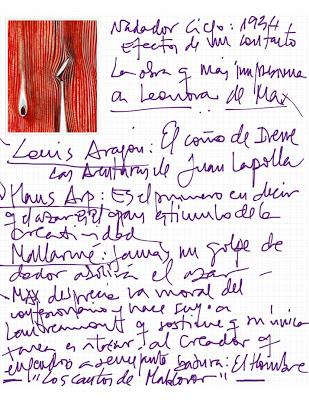 Nadador Ciego: 1934
Efectos de un contacto
La obra q más impresiona
a Leonora de Max
Louis Aragon: El coño de Irene
Las Aventuras de Juan Lapolla
Hans Arp: Es el primero en decir
q el azar es el gran estímulo de la
creatividad
Mallarmé: Jamás, un golpe de
dados abolirá el azar –
– Max desprecia la moral del
y hace suya a
Lautréamont q sostiene q su única
tarea es atacar al creador q
engendró a semejante basura: El Hombre
– "Los cantos de Maldoror" –